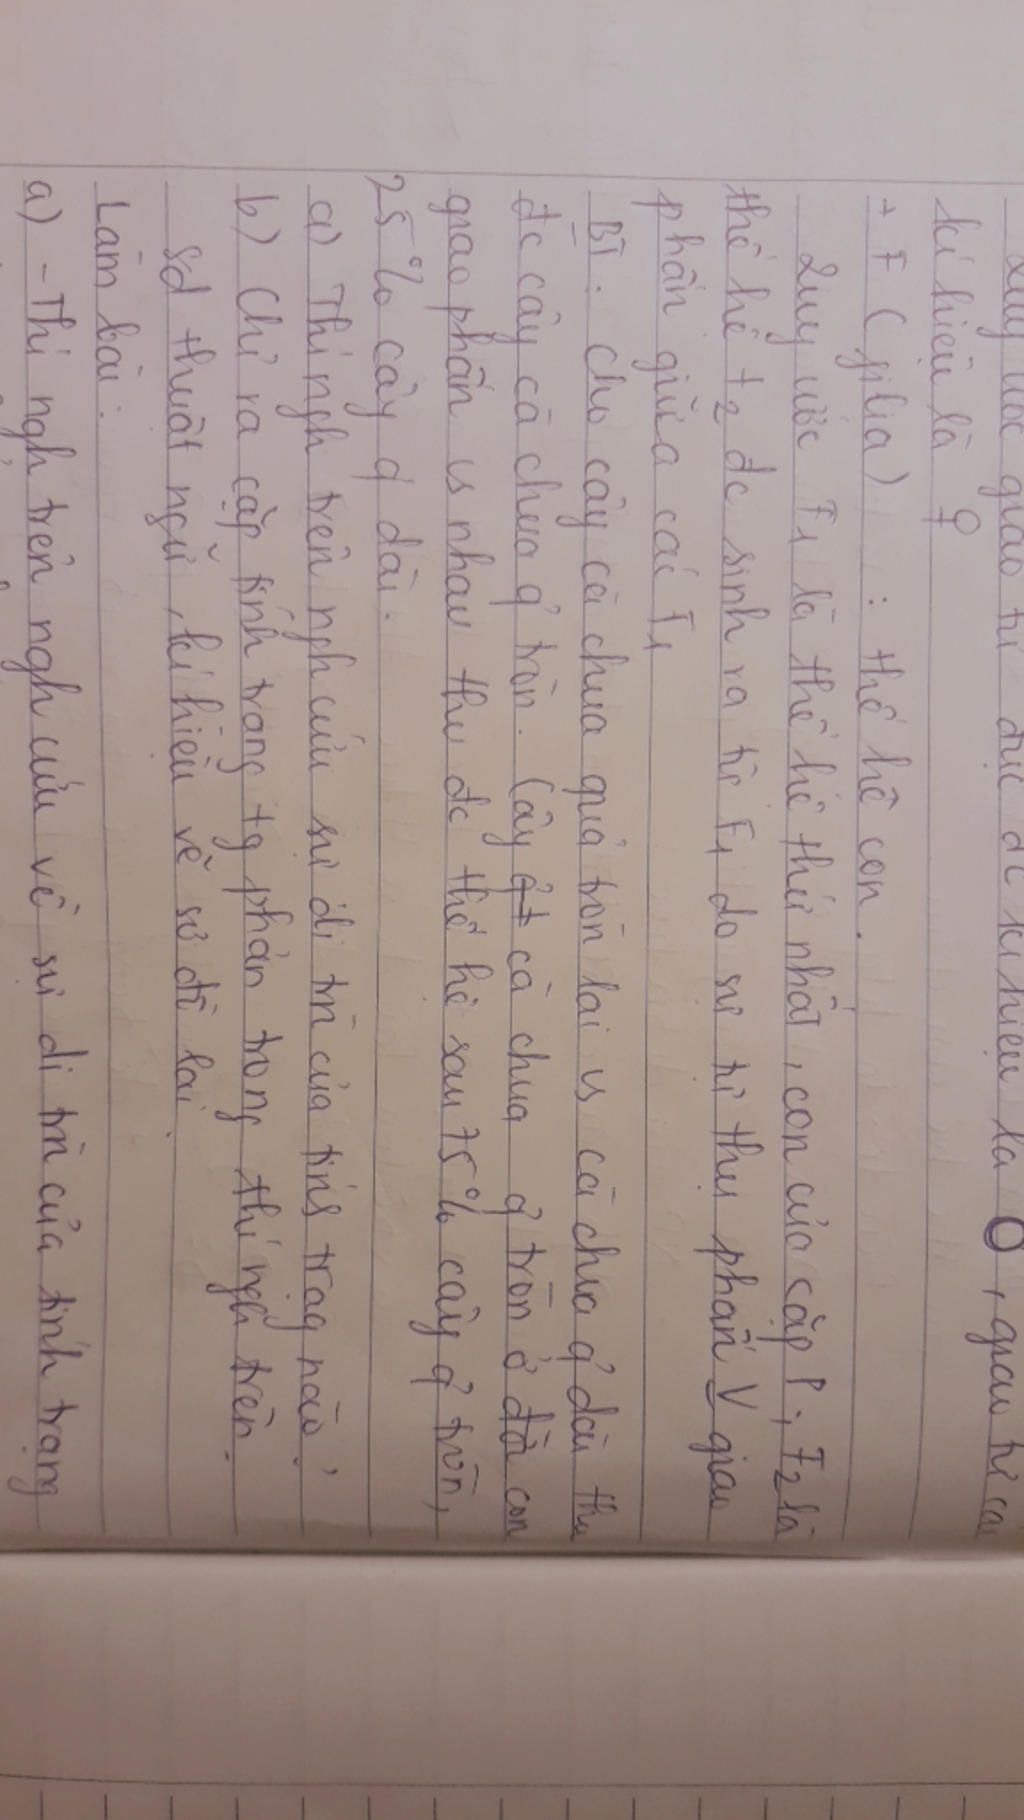 Quy ước giao tử đực đc kí hiệu là O, giao tử cái
kí hiệu là ♀
+ F (filia) : thế hệ con.
Quy ước F1 là thế hệ thứ nhất, con của cặp P; F2 là
thế hệ t2 đc sinh ra từ F1 do sự tự thụ phấn V giao
phấn giữa các F1
BT: Cho cây cà chua quả tròn lai vs cà chua q' dài thu
đc cây cà chua q' tròn. Cây cà chua q' tròn ở đời con
giao phấn vs nhau thu đc thế hệ sau 75% cây q' tròn,
25% cây q' dài.
a) Thí ngh trên ngh cứu sự di tr` của tính trạg nào?
b) Chỉ ra cặp tính trạng tg phản trong thí ngh trên.
sd thuật ngữ, kí hiệu vẽ sơ đồ lai.
Làm bài:
a) - Thí ngh trên ngh cứu về sự di tr` của tính trạng